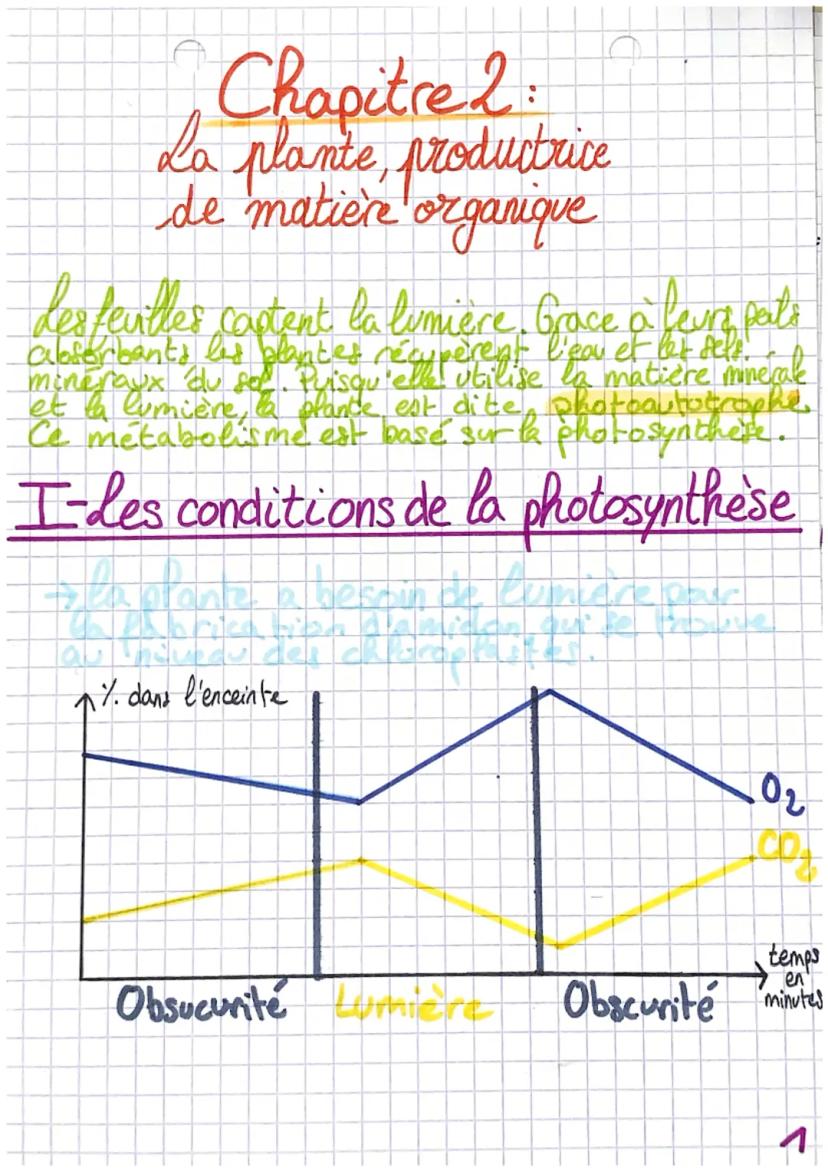 Chapitre 2 :
La plante, productrice
de matière organique
Les feuilles captent la lumière. Grace à leurs poils
absorbants les plantes récupèrent l'eau et les sels
minéraux du sol. Puisqu'elle utilise la matière minérale
et la lumière, la plante est dite photoautotrophe.
Ce métabolisme est basé sur la photosynthèse.
I-Les conditions de la photosynthèse
→ la plante a besoin de lumière pour
la fabrication d'amidon qui se trouve
au niveau des chloroplastes.
% dans l'enceinte
O2
CO2
temps
en
minutes
Obsucurité Lumière Obscurité
1